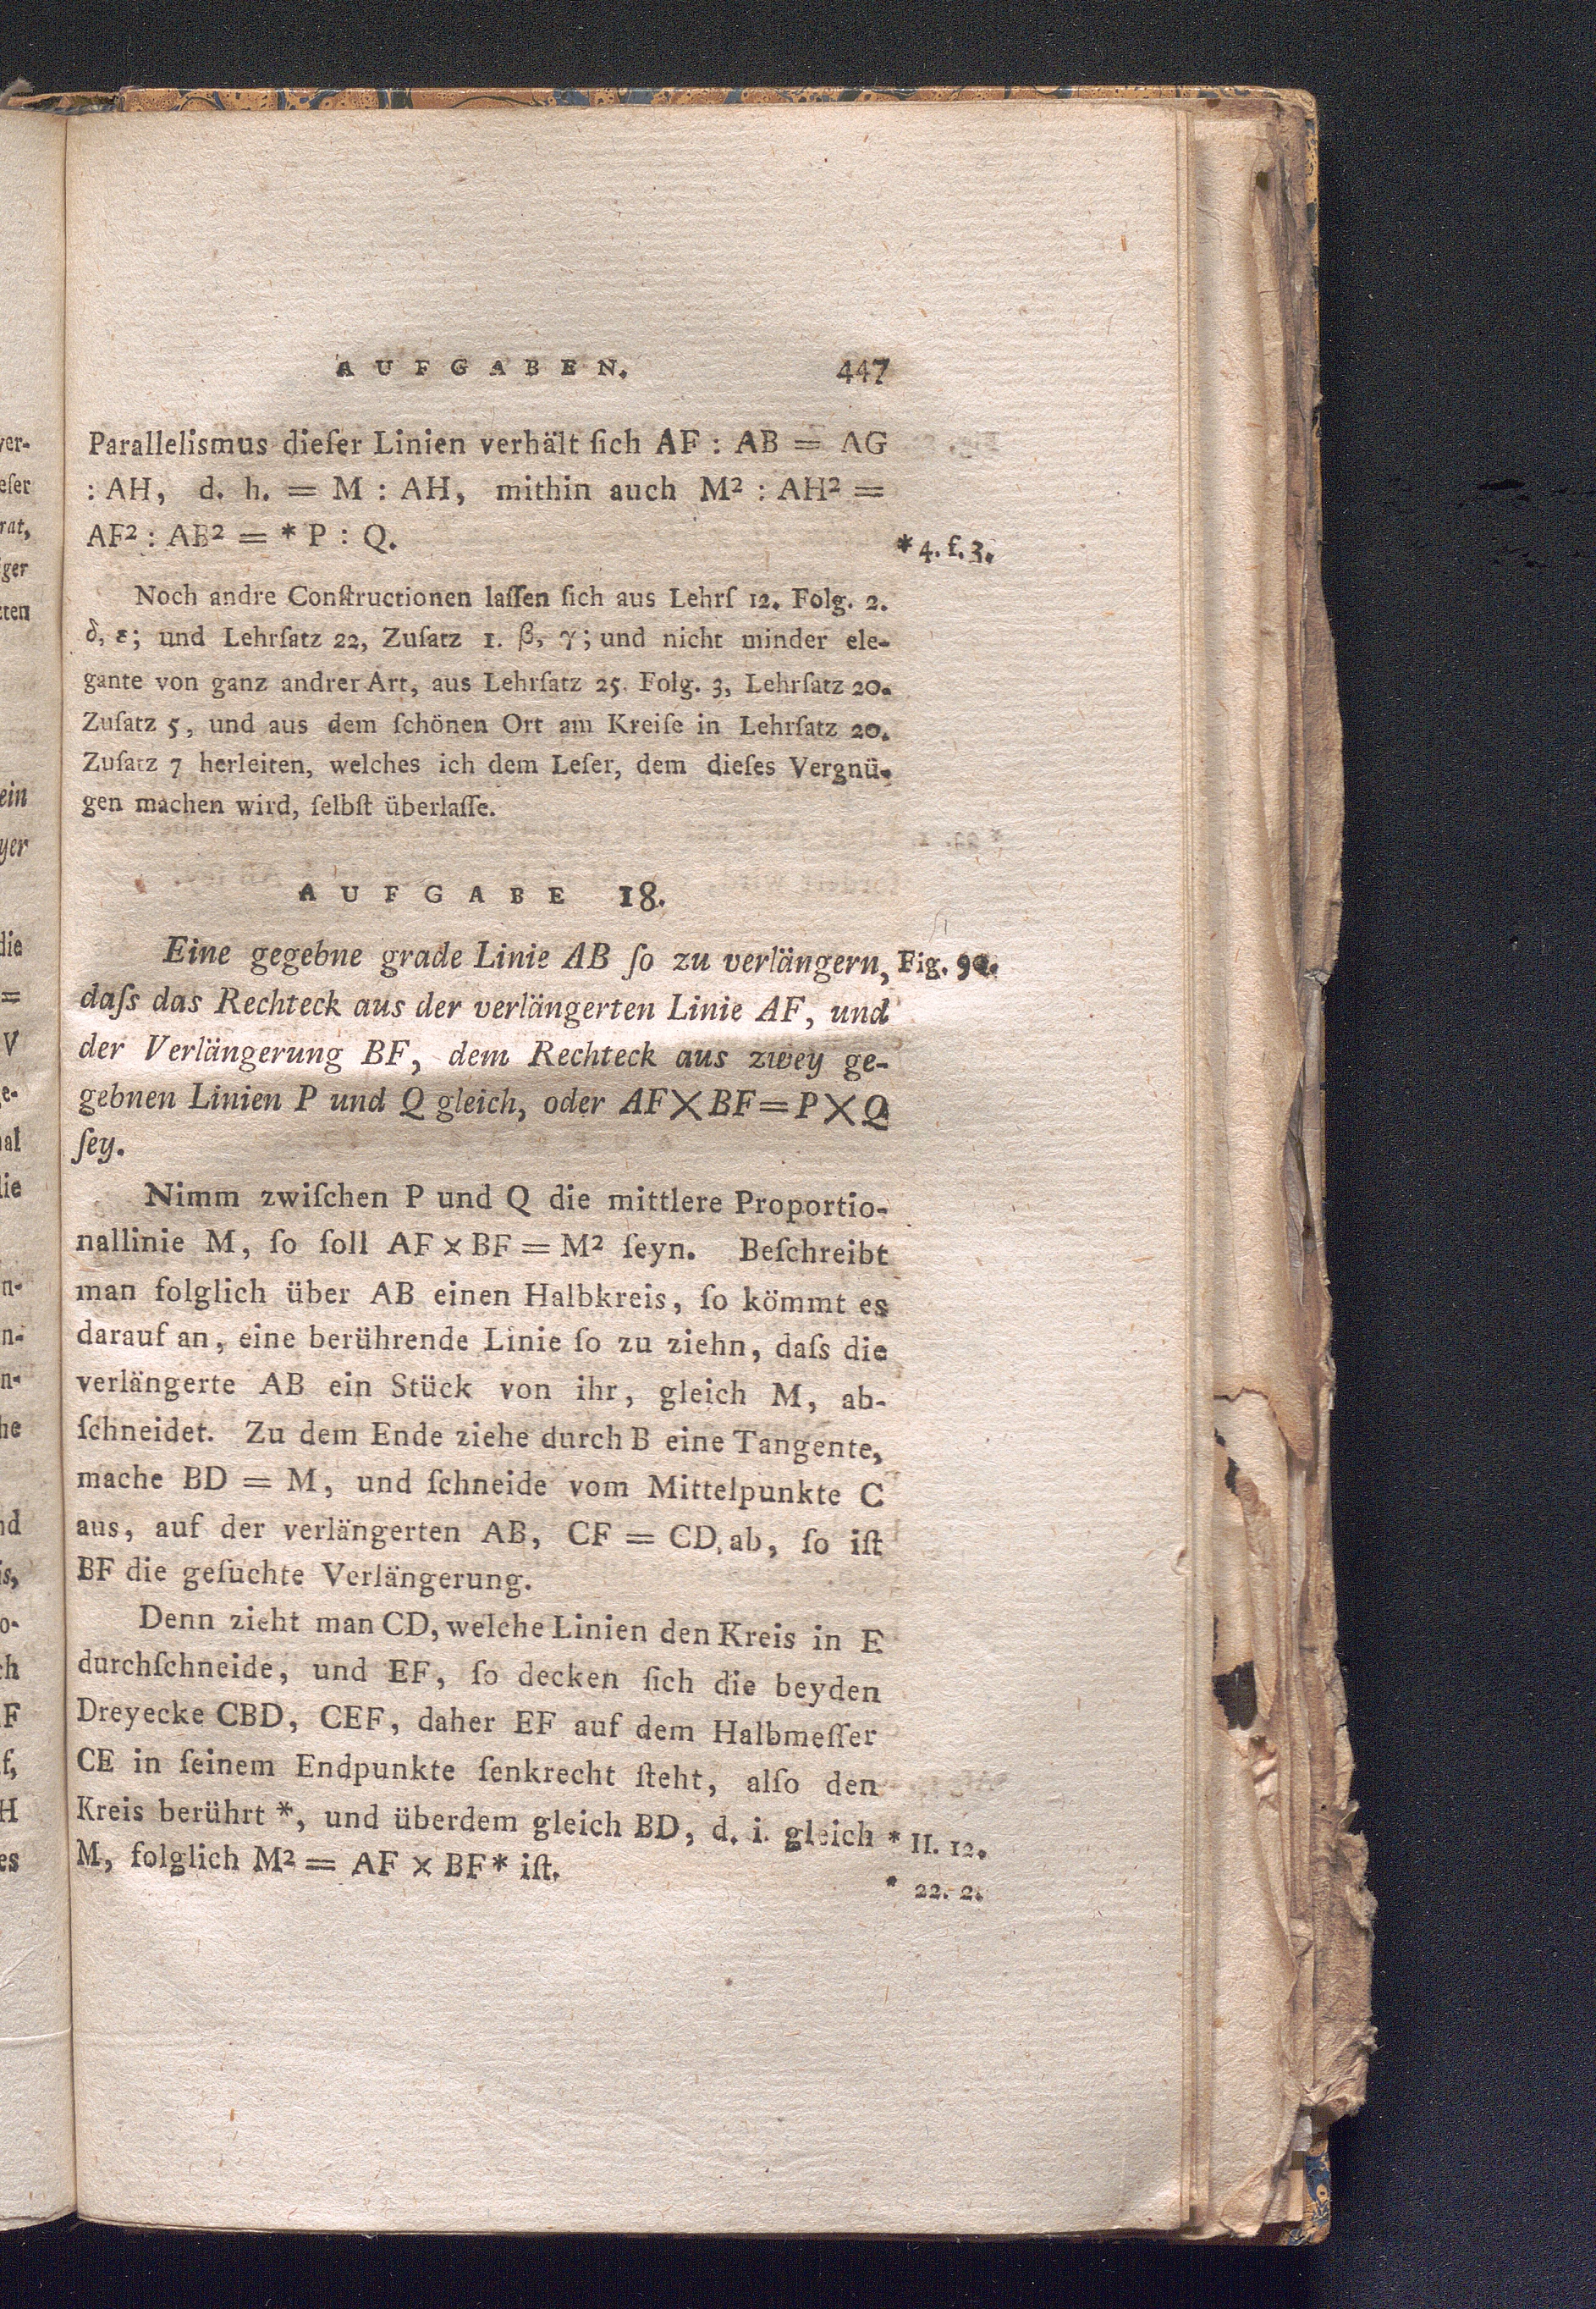 AUFGABEN. 447
Parallelismus dieſer Linien verhält ſich AF : AB = AG
: AH, d. h. = M : AH, mithin auch M² : AH² =
AF² : AB² = * P : Q.
* 4. f. 3.
Noch andre Conſtructionen laſſen ſich aus Lehrſ 12. Folg. 2.
δ, ε; und Lehrſatz 22, Zuſatz 1. β, γ; und nicht minder ele-
gante von ganz andrer Art, aus Lehrſatz 25. Folg. 3, Lehrſatz 20.
Zuſatz 5, und aus dem ſchönen Ort am Kreiſe in Lehrſatz 20.
Zuſatz 7 herleiten, welches ich dem Leſer, dem dieſes Vergnü-
gen machen wird, ſelbſt überlaſſe.
AUFGABE 18.
Eine gegebne grade Linie AB ſo zu verlängern,
Fig. 90.
daſs das Rechteck aus der verlängerten Linie AF, und
der Verlängerung BF, dem Rechteck aus zwey ge-
gebnen Linien P und Q gleich, oder AF×BF=P×Q
ſey.
Nimm zwiſchen P und Q die mittlere Proportio-
nallinie M, ſo ſoll AF × BF = M² ſeyn. Beſchreibt
man folglich über AB einen Halbkreis, ſo kömmt es
darauf an, eine berührende Linie ſo zu ziehn, daſs die
verlängerte AB ein Stück von ihr, gleich M, ab-
ſchneidet. Zu dem Ende ziehe durch B eine Tangente,
mache BD = M, und ſchneide vom Mittelpunkte C
aus, auf der verlängerten AB, CF = CD, ab, ſo iſt
BF die geſuchte Verlängerung.
Denn zieht man CD, welche Linien den Kreis in E
durchſchneide, und EF, ſo decken ſich die beyden
Dreyecke CBD, CEF, daher EF auf dem Halbmeſſer
CE in ſeinem Endpunkte ſenkrecht ſteht, alſo den
Kreis berührt *, und überdem gleich BD, d. i. gleich
* II. 12.
M, folglich M² = AF × BF * iſt.
* 22. 2.